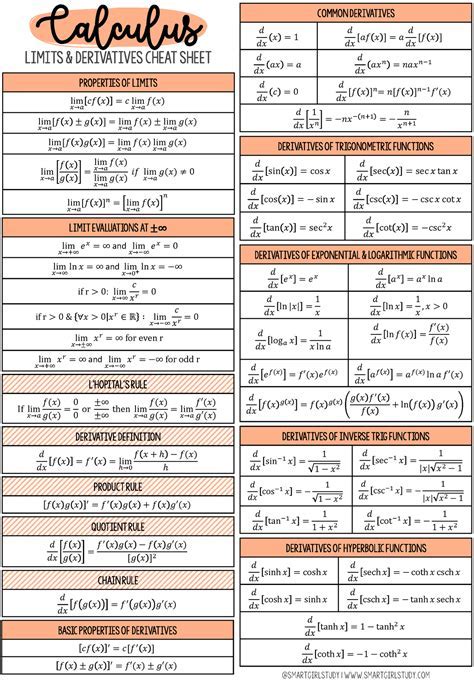 Calculus
LIMITS & DERIVATIVES CHEAT SHEET
PROPERTIES OF LIMITS
lim x→a [cf(x)] = c lim x→a f(x)
lim x→a [f(x) ± g(x)] = lim x→a f(x) ± lim x→a g(x)
lim x→a [f(x)g(x)] = lim x→a f(x) lim x→a g(x)
lim x→a [f(x)/g(x)] = lim x→a f(x) / lim x→a g(x) if lim x→a g(x) ≠ 0
lim x→a [f(x)]ⁿ = [lim x→a f(x)]ⁿ
LIMIT EVALUATIONS AT ±∞
lim x→+∞ eˣ = ∞ and lim x→−∞ eˣ = 0
lim x→∞ ln x = ∞ and lim x→0⁺ ln x = −∞
if r > 0: lim x→∞ c/xʳ = 0
if r > 0 & {∀x > 0|xʳ ∈ ℝ}: lim x→−∞ c/xʳ = 0
lim x→±∞ xʳ = ∞ for even r
lim x→+∞ xʳ = ∞ and lim x→−∞ xʳ = −∞ for odd r
L'HOPITAL'S RULE
If lim x→a f(x)/g(x) = 0/0 or ±∞/±∞ then lim x→a f(x)/g(x) = lim x→a f'(x)/g'(x)
DERIVATIVE DEFINITION
d/dx [f(x)] = f'(x) = lim h→0 (f(x + h) − f(x))/h
PRODUCT RULE
[f(x)g(x)]' = f'(x)g(x) + f(x)g'(x)
QUOTIENT RULE
d/dx [f(x)/g(x)] = (f'(x)g(x) − f(x)g'(x))/[g(x)]²
CHAIN RULE
d/dx [f(g(x))] = f'(g(x))g'(x)
BASIC PROPERTIES OF DERIVATIVES
[cf(x)]' = c[f'(x)]
[f(x) ± g(x)]' = f'(x) ± g'(x)
COMMON DERIVATIVES
d/dx (x) = 1
d/dx [af(x)] = a d/dx [f(x)]
d/dx (ax) = a
d/dx (axⁿ) = naxⁿ⁻¹
d/dx (c) = 0
d/dx [f(x)]ⁿ = n[f(x)]ⁿ⁻¹f'(x)
d/dx [1/xⁿ] = −nx⁻⁽ⁿ⁺¹⁾ = − n/xⁿ⁺¹
DERIVATIVES OF TRIGONOMETRIC FUNCTIONS
d/dx [sin(x)] = cos x
d/dx [sec(x)] = sec x tan x
d/dx [cos(x)] = − sin x
d/dx [csc(x)] = − csc x cot x
d/dx [tan(x)] = sec² x
d/dx [cot(x)] = −csc² x
DERIVATIVES OF EXPONENTIAL & LOGARITHMIC FUNCTIONS
d/dx [eˣ] = eˣ
d/dx [aˣ] = aˣ ln a
d/dx [ln |x|] = 1/x
d/dx [ln x] = 1/x, x > 0
d/dx [logₐ x] = 1/(x ln a)
d/dx [ln f(x)] = f'(x)/f(x)
d/dx [e^f(x)] = f'(x)e^f(x)
d/dx [a^f(x)] = a^f(x) ln a f'(x)
d/dx [f(x)^g(x)] = f(x)^g(x) (g(x)f'(x)/f(x) + ln(f(x)) g'(x))
DERIVATIVES OF INVERSE TRIG FUNCTIONS
d/dx [sin⁻¹ x] = 1/√(1 − x²)
d/dx [sec⁻¹ x] = 1/(|x|√(x² − 1))
d/dx [cos⁻¹ x] = −1/√(1 − x²)
d/dx [csc⁻¹ x] = −1/(|x|√(x² − 1))
d/dx [tan⁻¹ x] = 1/(1 + x²)
d/dx [cot⁻¹ x] = −1/(1 + x²)
DERIVATIVES OF HYPERBOLIC FUNCTIONS
d/dx [sinh x] = cosh x
d/dx [sech x] = − coth x csch x
d/dx [cosh x] = sinh x
d/dx [csch x] = − tanh x sech x
d/dx [tanh x] = 1 − tanh² x
d/dx [coth x] = −1 − coth² x
@SMARTGIRLSTUDY | WWW.SMARTGIRLSTUDY.COM